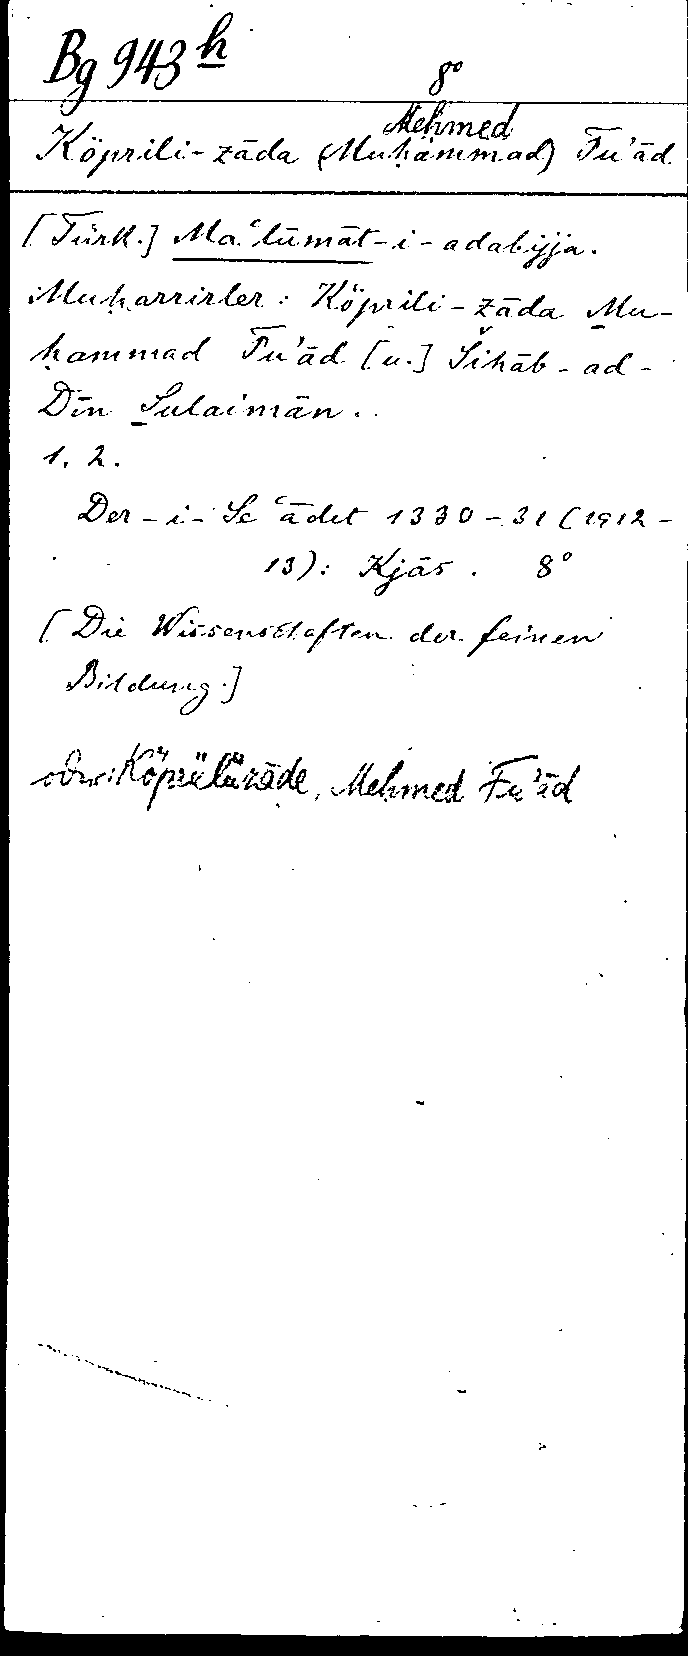 Bg 943 h
8°
Mehmed
Köprili-zāda (Muḥammad) Fu'ād
[Türk.] Maʿlūmāt-i-adabijja.
Muḥarrirler: Köprili-zāda Mu-
ḥammad Fu'ād [u.] Šihāb-ad-
Dīn Sulaimān.
1. 2.
Der-i-Seʿādet 1330-31 (1912-
13): Kjās. 8°
[Die Wissenschaften der feinen
Bildung.]
oder: Köprülüzāde, Mehmed Fu'ād